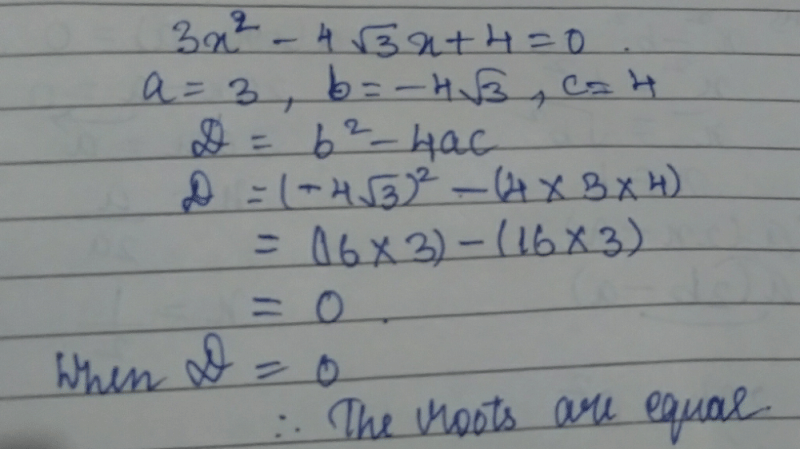 3x² - 4√3x + 4 = 0.
a = 3, b = -4√3, c = 4
D = b² - 4ac
D = (-4√3)² - (4 × 3 × 4)
= (16 × 3) - (16 × 3)
= 0.
When D = 0
∴ The roots are equal.